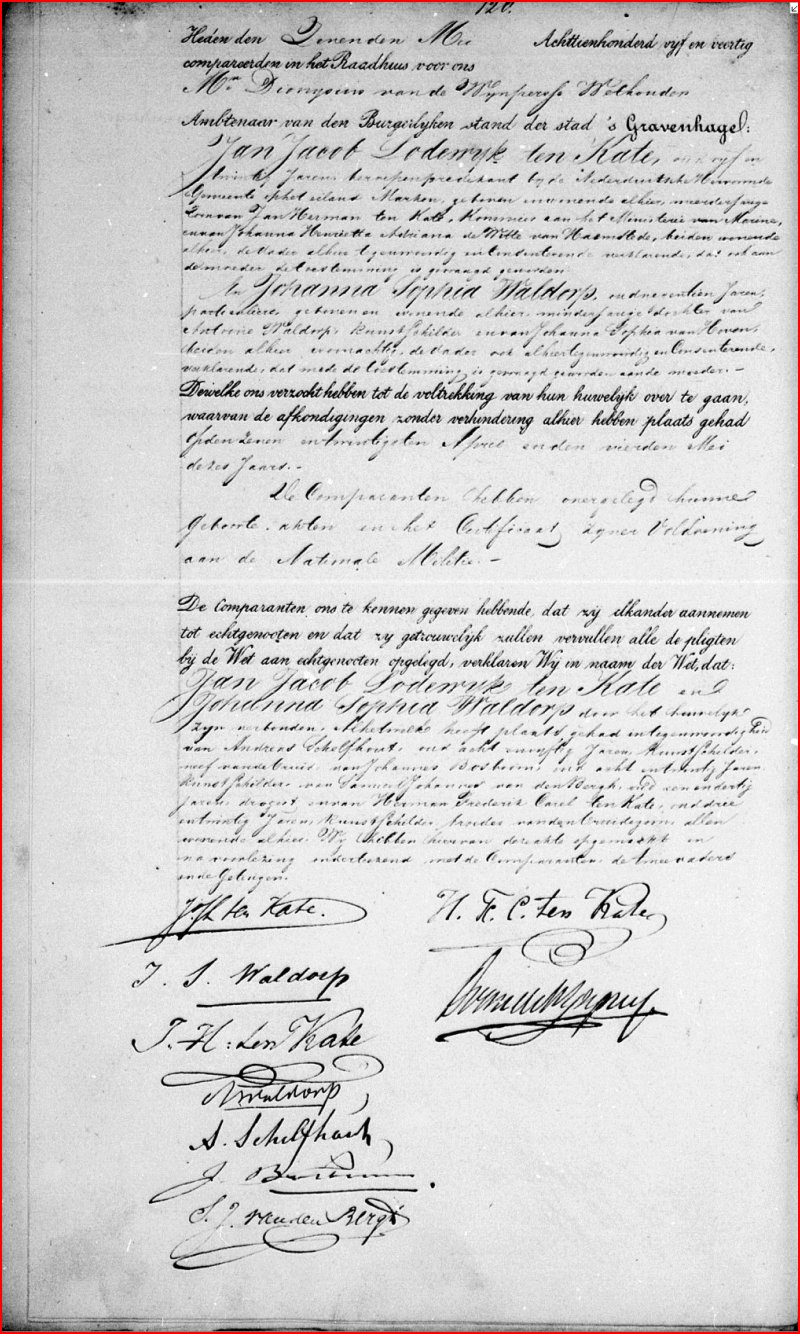 120.
Heden den Zevenden Mei Achttienhonderd vyf en veertig
compareerden in het Raadhuis voor ons
Mr. Dionysius van de Wynpersse Wethouder
Ambtenaar van den Burgerlyken stand der stad 's Gravenhage:
Jan Jacob Lodewyk ten Kate, oud vyf en
twintig Jaren, beroepen predikant by de Nederduitsche Hervormde
Gemeente op het eiland Marken, geboren en wonende alhier, meerderjarige
Zoon van Jan Herman ten Kate, Kommies aan het Ministerie van Marine,
en van Johanna Henrietta Adriana de Witte van Haemstede, beiden wonende
alhier, de vader alhier tegenwoordig en Consenterende verklarende, dat ook aan
de moeder de toestemming is gevraagd geworden
En Johanna Sophia Waldorp, oud negentien Jaren,
particuliere, geboren en wonende alhier, minderjarige dochter van
Antonie Waldorp, Kunstschilder en van Johanna Sophia van Hoven,
beiden alhier woonachtig, de Vader ook alhier tegenwoordig en Consenterende,
verklarende, dat mede de toestemming is gevraagd geworden aan de moeder.-
Dewelke ons verzocht hebben tot de voltrekking van hun huwelyk over te gaan,
waarvan de afkondigingen zonder verhindering alhier hebben plaats gehad
Op den zeven en twintigsten April en den vierden Mei
dezes Jaars.-
De Comparanten hebben overgelegd hunne
Geboorte-akten en het Certificaat zyner Voldoening
aan de Nationale Militie.-
De Comparanten ons te kennen gegeven hebbende, dat zij elkander aannemen
tot echtgenooten en dat zy getrouwelyk zullen vervullen alle de pligten
bij de Wet aan echtgenooten opgelegd, verklaren Wij in naam der Wet, dat:
Jan Jacob Lodewyk ten Kate en
Johanna Sophia Waldorp door het huwelyk
zyn verbonden. Al hetwelk heeft plaats gehad in tegenwoordigheid
van Andreas Schelfhout, oud acht en vyftig Jaren, Kunstschilder,
neef van de bruid, van Johannes Bosboom, oud acht en twintig Jaren
Kunstschilder, van Samuel Johannes van den Bergh, oud een en dertig
Jaren, drogist en van Herman Frederik Carel ten Kate, oud drie
en twintig Jaren, Kunstschilder, broeder van den bruidegom, allen
wonende alhier. Wy hebben hiervan deze akte opgemaakt en
na voorlezing onderteekend met de Comparanten, de twee vaders
en de Getuigen.
J.J.L. ten Kate. H. F. C. ten Kate
J. S. Waldorp
J. H. ten Kate
A. Waldorp
A. Schelfhout
J. Bosboom
S. J. van den Bergh